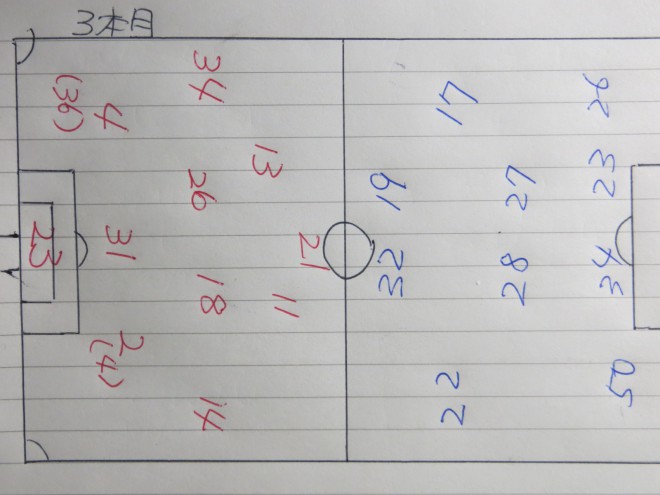 3本目
34
4
(36)
13
26
31
23
21
18
11
2
(4)
14
17
26
19
27
23
32
28
34
22
50